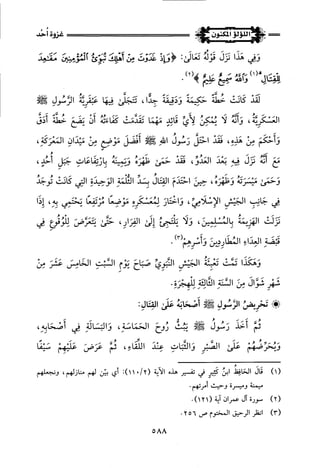 اللؤلؤ المكنون
غزوة أحد
وَفِي هَذَا نَزَلَ قَوْلُهُ تَعَالَى: ﴿وَإِذْ غَدَوْتَ مِنْ أَهْلِكَ تُبَوِّئُ الْمُؤْمِنِينَ مَقَاعِدَ
لِلْقِتَالِ (١) وَاللَّهُ سَمِيعٌ عَلِيمٌ﴾ (٢).
لَقَدْ كَانَتْ خُطَّةً حَكِيمَةً وَدَقِيقَةً جِدًّا، تَتَجَلَّى فِيهَا عَبْقَرِيَّةُ الرَّسُولِ ﷺ
العَسْكَرِيَّةُ، وَأَنَّهُ لَا يُمْكِنُ لِأَيِّ قَائِدٍ مَهْمَا تَقَدَّمَتْ كَفَاءَتُهُ أَنْ يَضَعَ خُطَّةً أَدَقَّ
وَأَحْكَمَ مِنْ هَذِهِ، فَقَدِ احْتَلَّ رَسُولُ اللهِ ﷺ أَفْضَلَ مَوْضِعٍ مِنْ مَيْدَانِ المَعْرَكَةِ،
مَعَ أَنَّهُ نَزَلَ فِيهِ بَعْدَ العَدُوِّ، فَقَدْ حَمَى ظَهْرَهُ وَيَمِينَهُ بِارْتِفَاعَاتِ جَبَلِ أُحُدٍ،
وَحَمَى مَيْسَرَتَهُ وَظَهْرَهُ، حِينَ احْتَدَمَ القِتَالُ بِسَدِّ الثُّلْمَةِ الوَحِيدَةِ التِي كَانَتْ تُوجَدُ
فِي جَانِبِ الجَيْشِ الإِسْلَامِيِّ، وَاخْتَارَ لِمُعَسْكَرِهِ مَوْضِعًا مُرْتَفِعًا يَحْتَمِي بِهِ، إِذَا
نَزَلَتْ الهَزِيمَةُ بِالمُسْلِمِينَ، وَلَا يَلْتَجِئُ إِلَى الفِرَارِ، حَتَّى يَتَعَرَّضَ لِلْوُقُوعِ فِي
قَبْضَةِ العِدَاءِ المُطَارِدِينَ وَأَسْرِهِمْ (٣).
وَهَكَذَا تَمَّتْ تَعْبِئَةُ الجَيْشِ النَّبَوِيِّ صَبَاحَ يَوْمِ السَّبْتِ الخَامِسَ عَشَرَ مِنْ
شَهْرِ شَوَّالٍ مِنَ السَّنَةِ الثَّالِثَةِ لِلْهِجْرَةِ.
تَحْرِيضُ الرَّسُولِ ﷺ أَصْحَابَهُ عَلَى القِتَالِ:
ثُمَّ أَخَذَ رَسُولُ ﷺ يَبُثُّ رُوحَ الحَمَاسَةِ، وَالبَسَالَةِ فِي أَصْحَابِهِ،
وَيُحَرِّضُهُمْ عَلَى الصَّبْرِ وَالثَّبَاتِ عِنْدَ اللِّقَاءِ، ثُمَّ عَرَضَ عَلَيْهِمْ سَيْفًا
(١) قَالَ الحَافِظُ ابنُ كَثِيرٍ في تفسير هذه الآية (١١٠/٢): أي: بيّن لهم منازلهم، ونجعلهم
ميمنة وميسرة وحيث أمرتهم.
(٢) سورة آل عمران آية (١٢١).
(٣) انظر الرحيق المختوم ص ٢٥٦.
٥٨٨